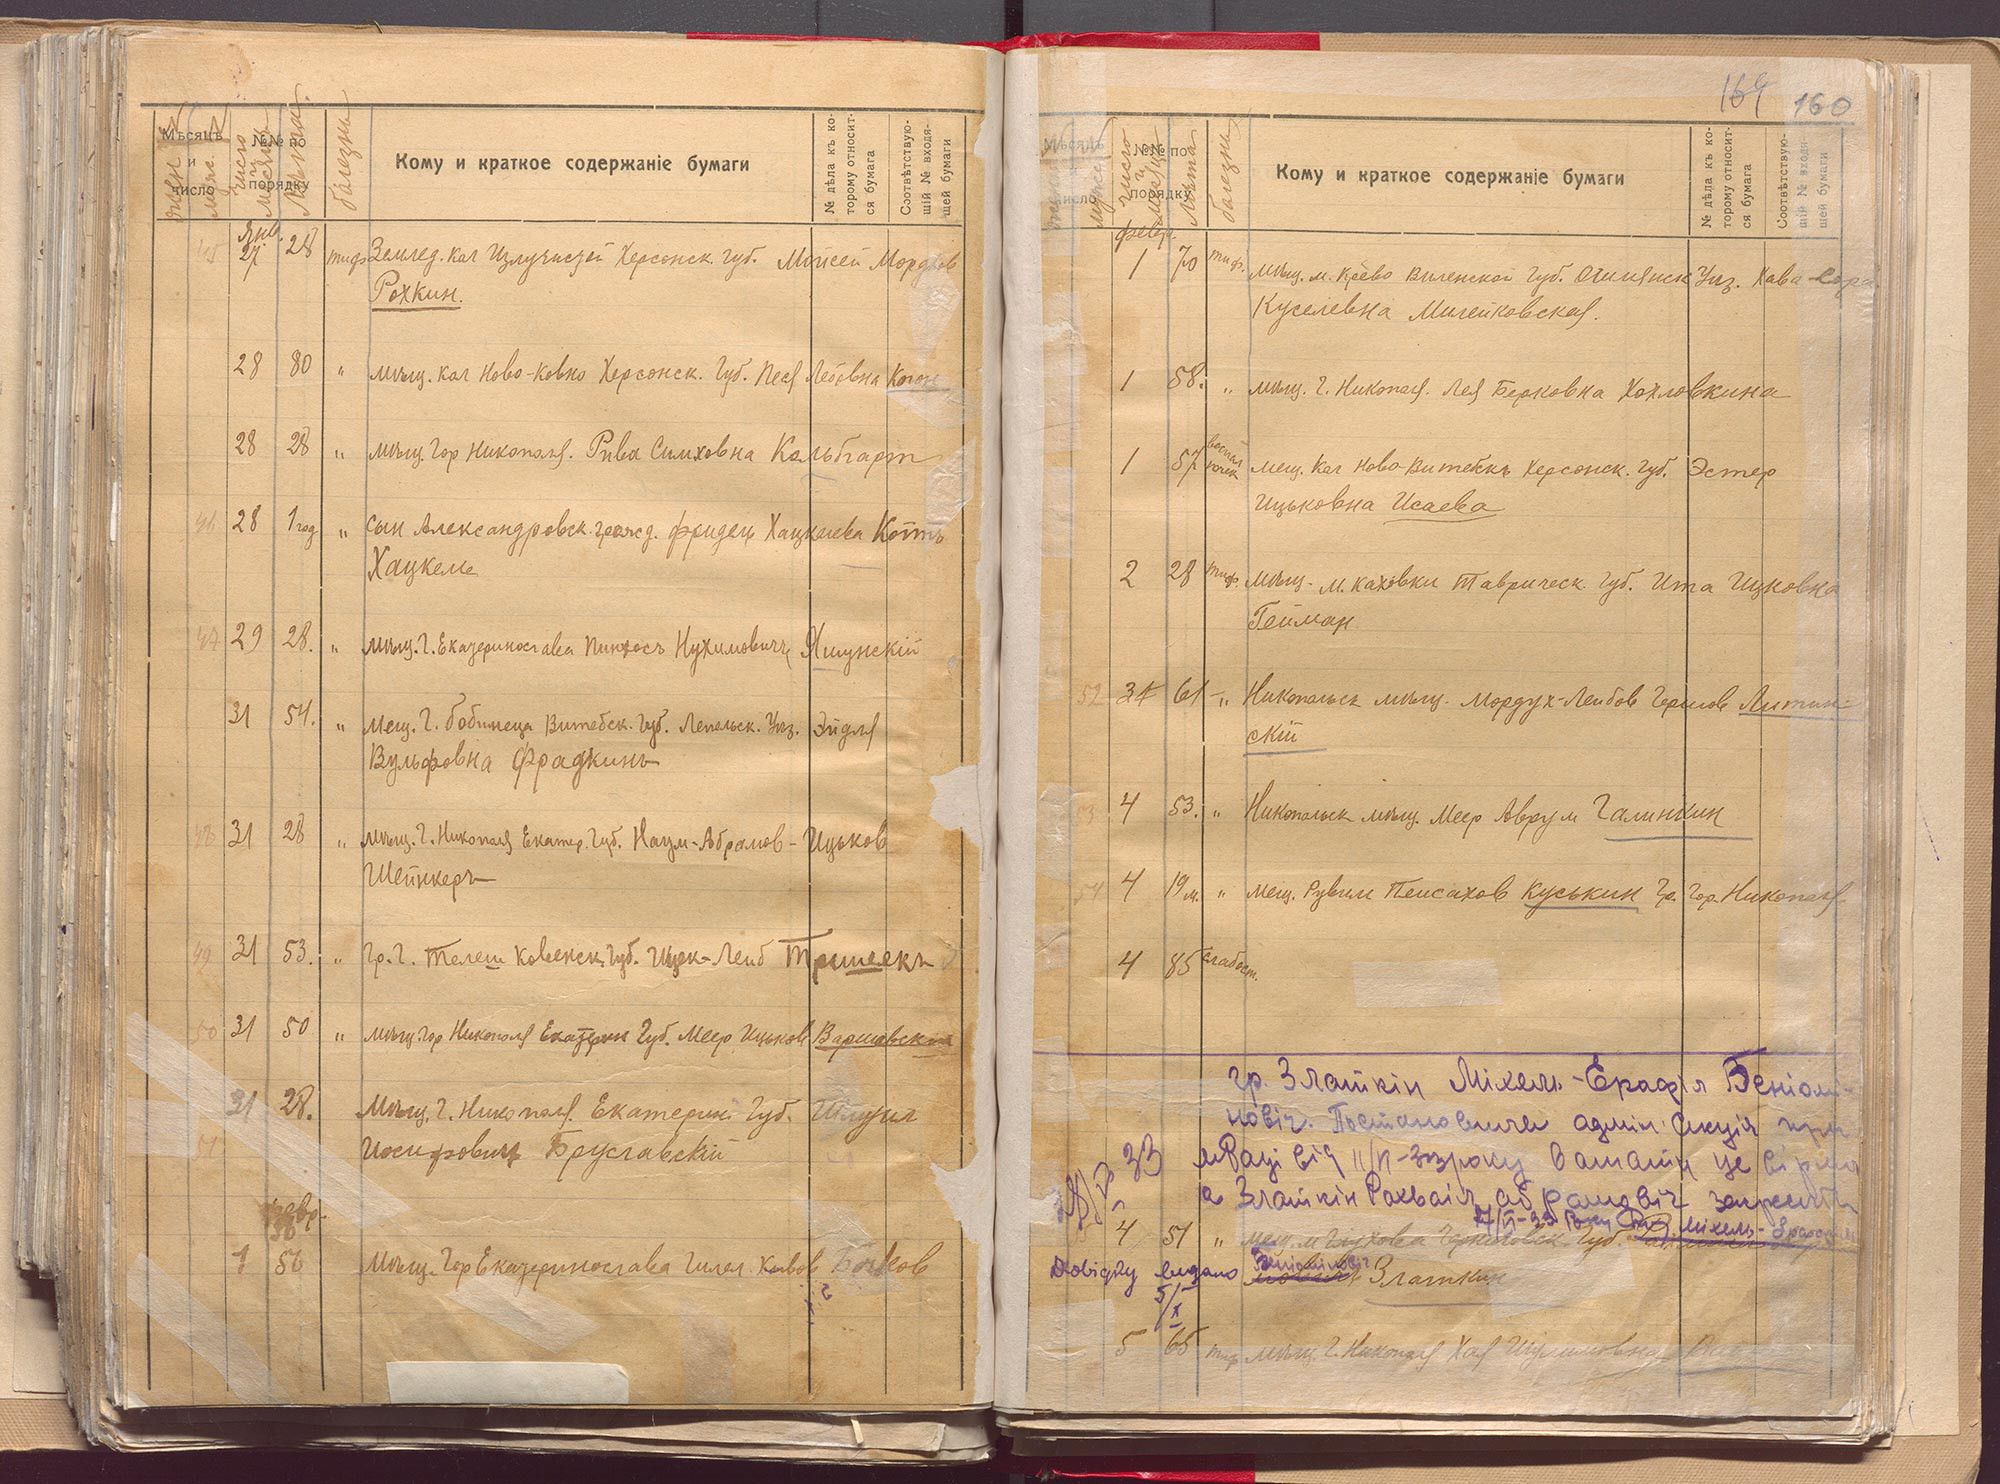 Мѣсяцъ и число
№№ по порядку
болезни
Кому и краткое содержаніе бумаги
№ дѣла къ которому относится бумага
Соотвѣтствующій № входящей бумаги
Янв.
27 28 тиф Землед. кол Излучистой Херсонск. Губ. Мойсей Мордхов
Рохкин.
28 80 " мѣщ. кол Ново-Ковно Херсонск. Губ. Песя Лебовна Коган
28 28 " мѣщ. Гор Никополя. Рива Симховна Кольбгарт
46 28 1 год " Сын Александровск. гражд. Фридец Хацкелева Котт
Хацкель
47 29 28. " мѣщ. Г. Екатеринослава Пинхосъ Нухимовичъ Яшунскій
31 54. " мещ. Г. Бобинеца Витебск. Губ. Лепельск. Уѣз. Эйдля
Вульфовна Фрадкинъ
48 31 28 " мѣщ. Г. Никополя Екатер. Губ. Наум-Абрамов-Ицьков
Шейнкеръ
49 31 53. " Гр. Г. Телеш Ковенск. Губ. Ицек-Лейб Тришеекъ
50 31 50 " мѣщ. Гор Никополя Екатерин Губ. Меер Ицьков Варшавский
31 28. Мѣщ. Г. Никополя. Екатерин Губ. Шмуил
51 Иосифович Бруславскій
февр.
1 56 Мѣщ. Гор Екатеринослава Гилел Кивов Божков
164 160
Мѣсяцъ и число
№№ по порядку
Число
Лѣта
болезни
Кому и краткое содержаніе бумаги
№ дѣла къ которому относится бумага
Соотвѣтствующій № входящей бумаги
февр.
1 70 тиф. мѣщ. м. Крево Виленской Губ. Ошмянск Уѣз. Хава-Сора
Куселевна Милейковская.
1 58. " мѣщ. Г. Никополя. Лея Берковна Хохловкина
1 57 мещ. Кол Ново-Витебскъ Херсонск. Губ. Эстер
Ицьковна Исаева
2 28 тиф. мѣщ. м. Каховки Таврическ. Губ. Ита Ицковна
Гейман
52 3 61 " Никопольск мѣщ. Мордух-Лейбов Гершов Литин-
скій
53 4 53. " Никопольск мѣщ. Меер Аврум Галинкин
54 4 19 м. " мещ. Рувим Пейсахов Куськин Гр. Гор. Никополя.
4 85 слабост.
гр. Златкін Міхель-Ерафіл Беніомі-
нович. Постановила адмін. секція при
мРаці від 11/VI-33 року вважати це вірно
а Златкін Рахваіл Абрамовіч закреслить
7/VI-33 Року Міхель-
4 51 " мещ. м Глухова Черниговск Губ.
Довідку видано Беніомінович Златкин
5/X
5 65 тиф мѣщ. Г. Никополя Хая Шулимовна